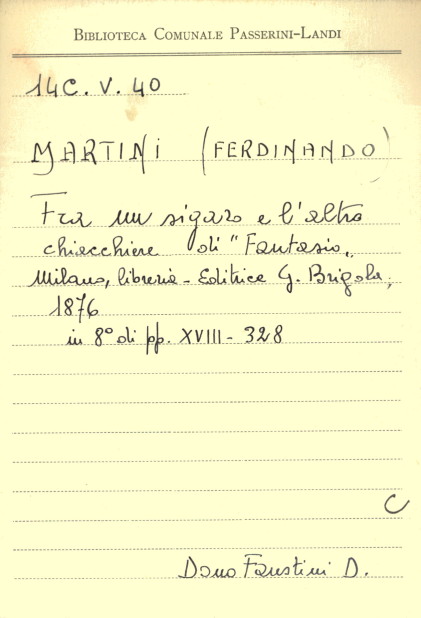 BIBLIOTECA COMUNALE PASSERINI-LANDI
14C. V. 40
MARTINI (FERDINANDO)
Fra un sigaro e l'altro
chiacchiere di "Fantasio„
Milano, libreria - Editrice G. Brigola,
1876
in 8° di pp. XVIII - 328
C
Dono Faustini D.